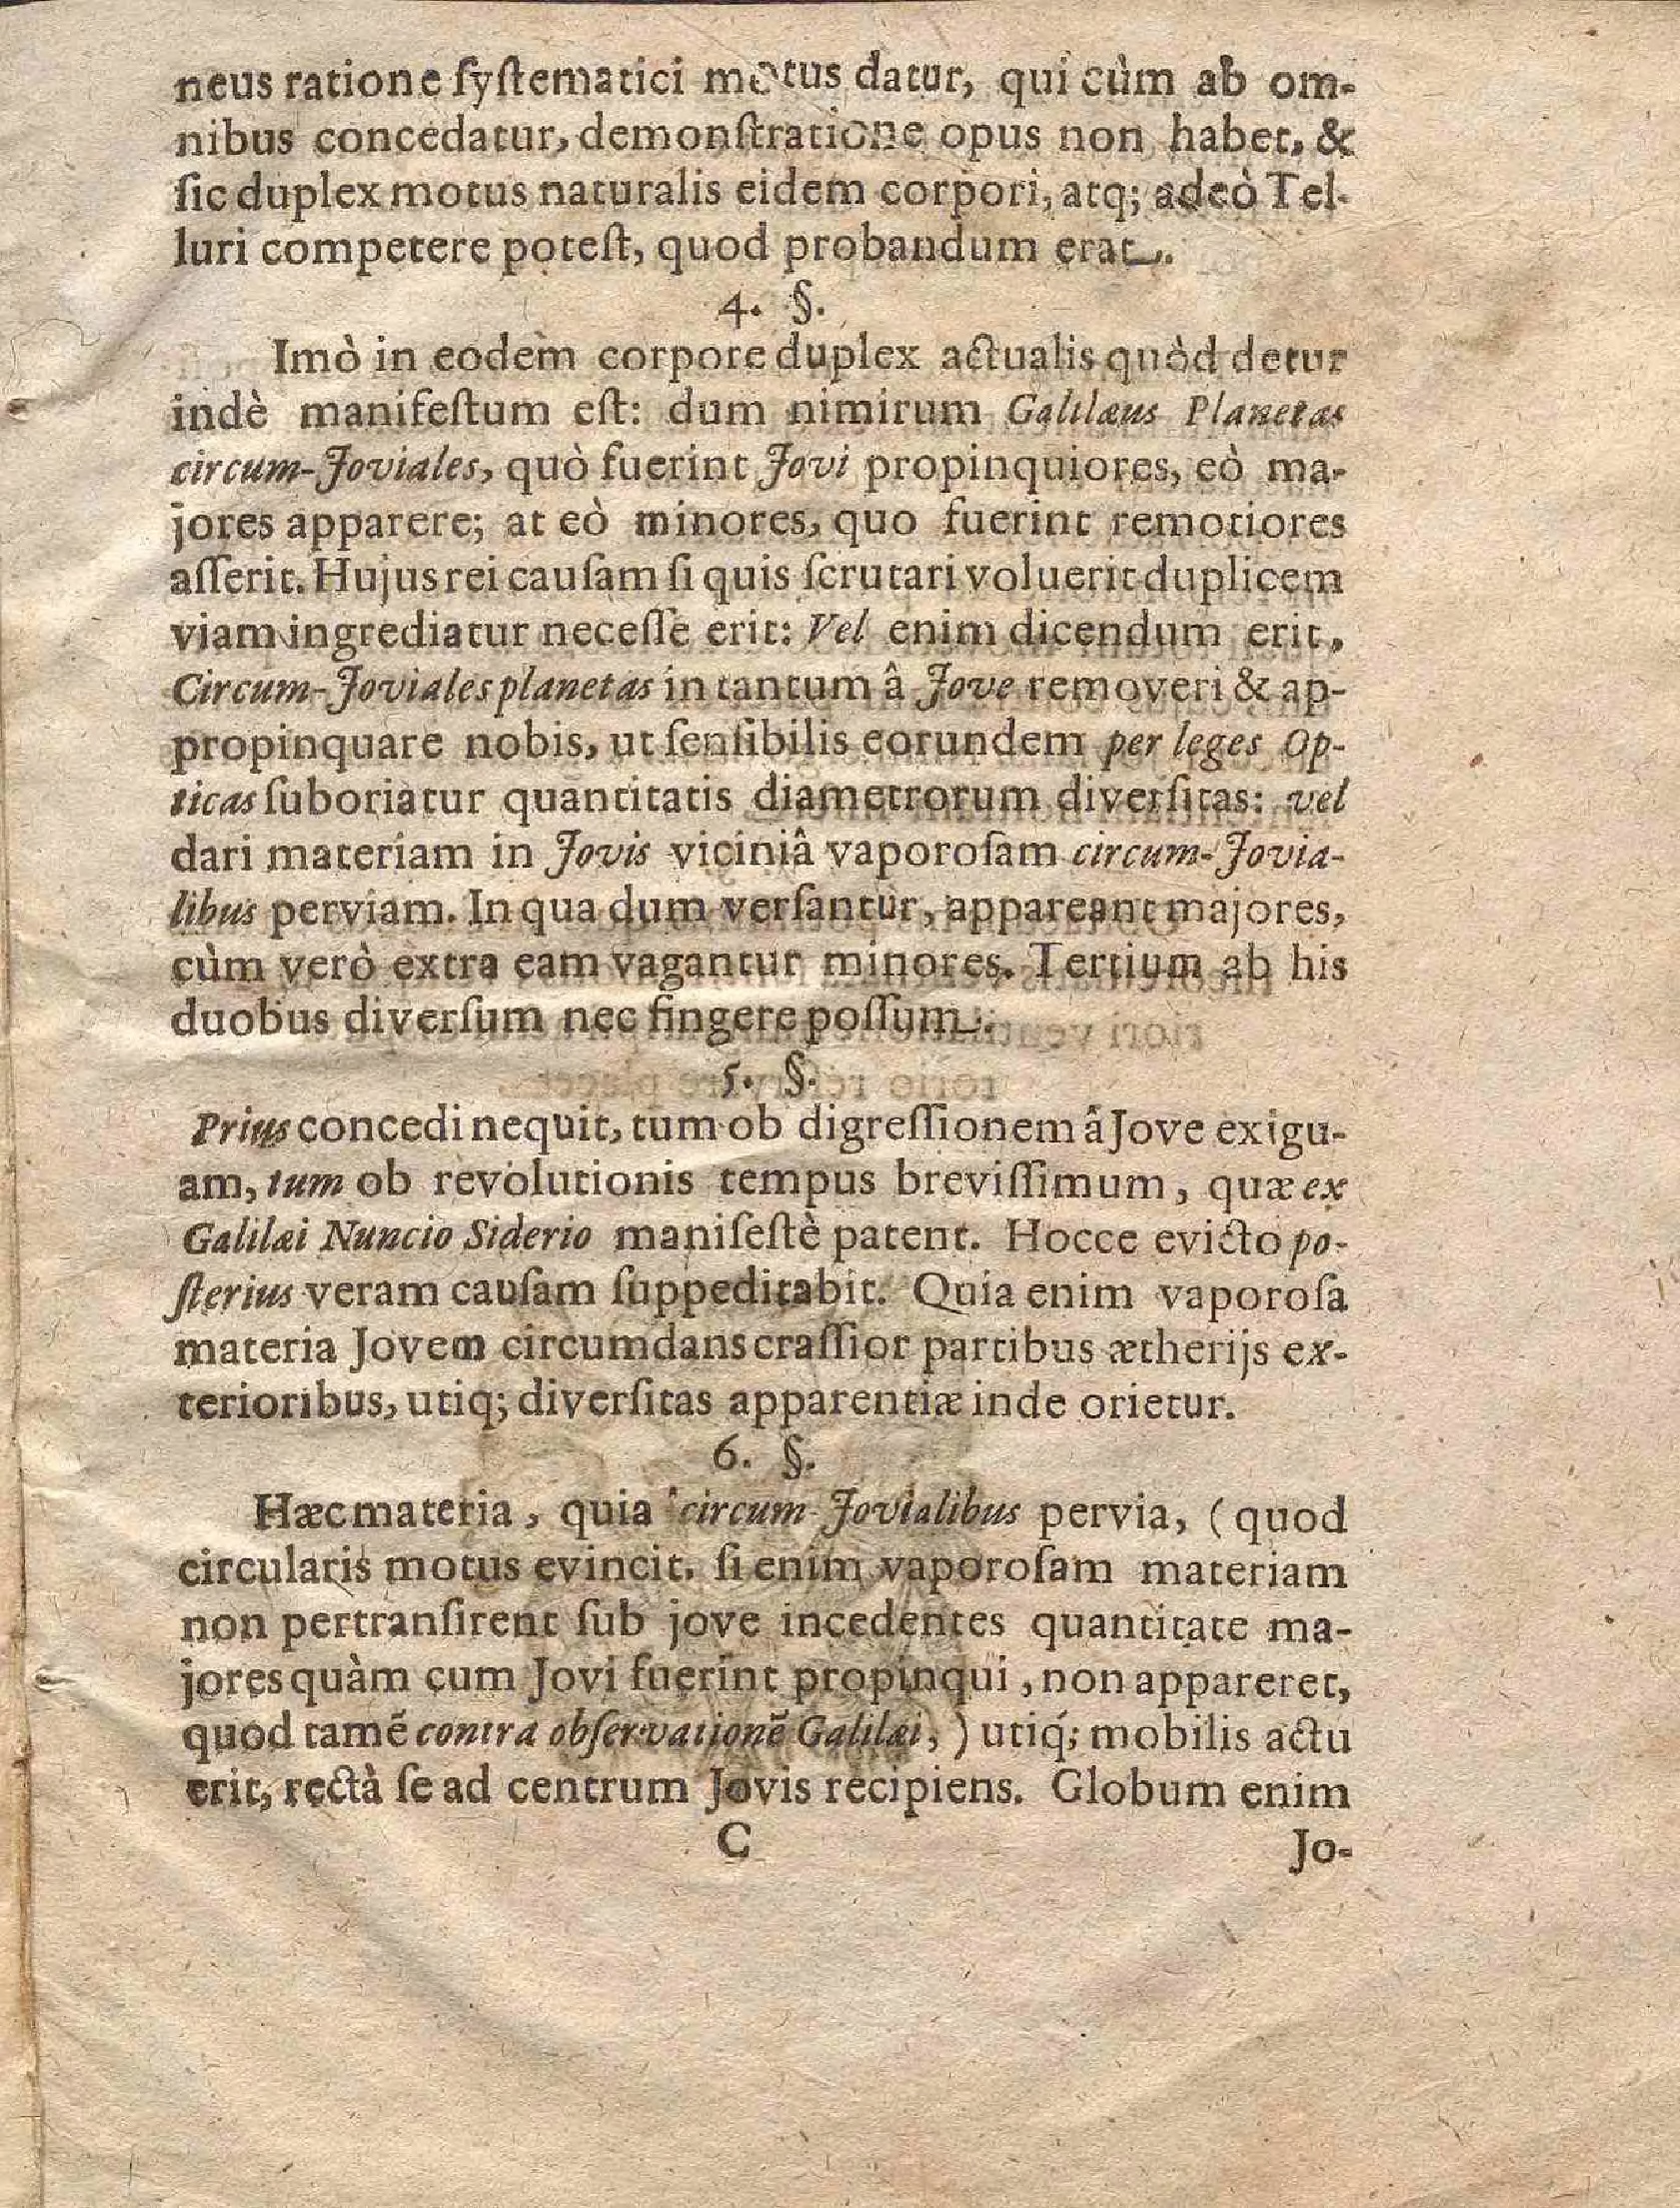 neus ratione ſyſtematici motus datur, qui cùm ab om-
nibus concedatur, demonſtratione opus non habet, &
ſic duplex motus naturalis eidem corpori, atq; adeò Tel-
luri competere poteſt, quod probandum erat.
4. §.
Imò in eodem corpore duplex actualis quòd detur
indè manifeſtum eſt: dum nimirum Galilæus Planetas
circum-Joviales, quò fuerint Jovi propinquiores, eò ma-
jores apparere; at eò minores, quo fuerint remotiores
aſſerit. Hujus rei cauſam ſi quis ſcrutari voluerit duplicem
viam ingrediatur neceſſe erit: Vel enim dicendum erit,
Circum-Joviales planetas in tantum â Jove removeri & ap-
propinquare nobis, ut ſenſibilis eorundem per leges Op-
ticas ſuboriatur quantitatis diametrorum diverſitas: vel
dari materiam in Jovis viciniâ vaporoſam circum-Jovia-
libus perviam. In qua dum verſantur, appareant majores,
cùm verò extra eam vagantur minores. Tertium ab his
duobus diverſum nec fingere poſſum.
5. §.
Prius concedi nequit, tum ob digreſſionem â Jove exigu-
am, tum ob revolutionis tempus breviſſimum, quæ ex
Galilæi Nuncio Siderio manifeſtè patent. Hocce evicto po-
ſterius veram cauſam ſuppeditabit. Quia enim vaporoſa
materia Jovem circumdans craſſior partibus ætherijs ex-
terioribus, utiq; diverſitas apparentiæ inde orietur.
6. §.
Hæc materia, quia circum-Jovialibus pervia, (quod
circularis motus evincit. ſi enim vaporoſam materiam
non pertranſirent ſub jove incedentes quantitate ma-
jores quàm cum Jovi fuerint propinqui, non appareret,
quod tamẽ contra obſervationẽ Galilæi,) utiq́; mobilis actu
erit, rectà ſe ad centrum Jovis recipiens. Globum enim
C
Jo-